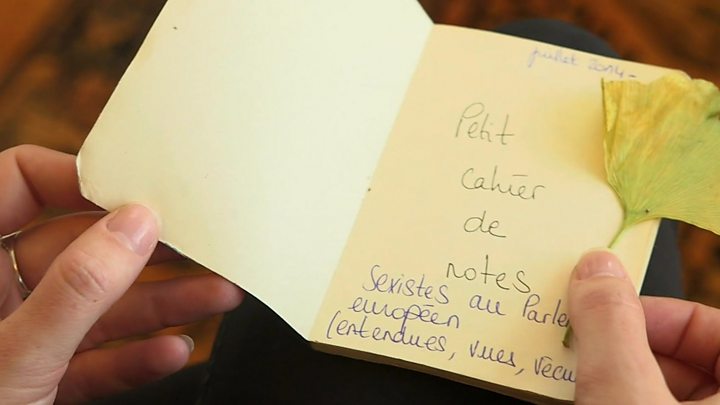 juillet 2014-
Petit
cahier
de
notes
Sexistes au Parle
européen
(entendues, vues, vécu